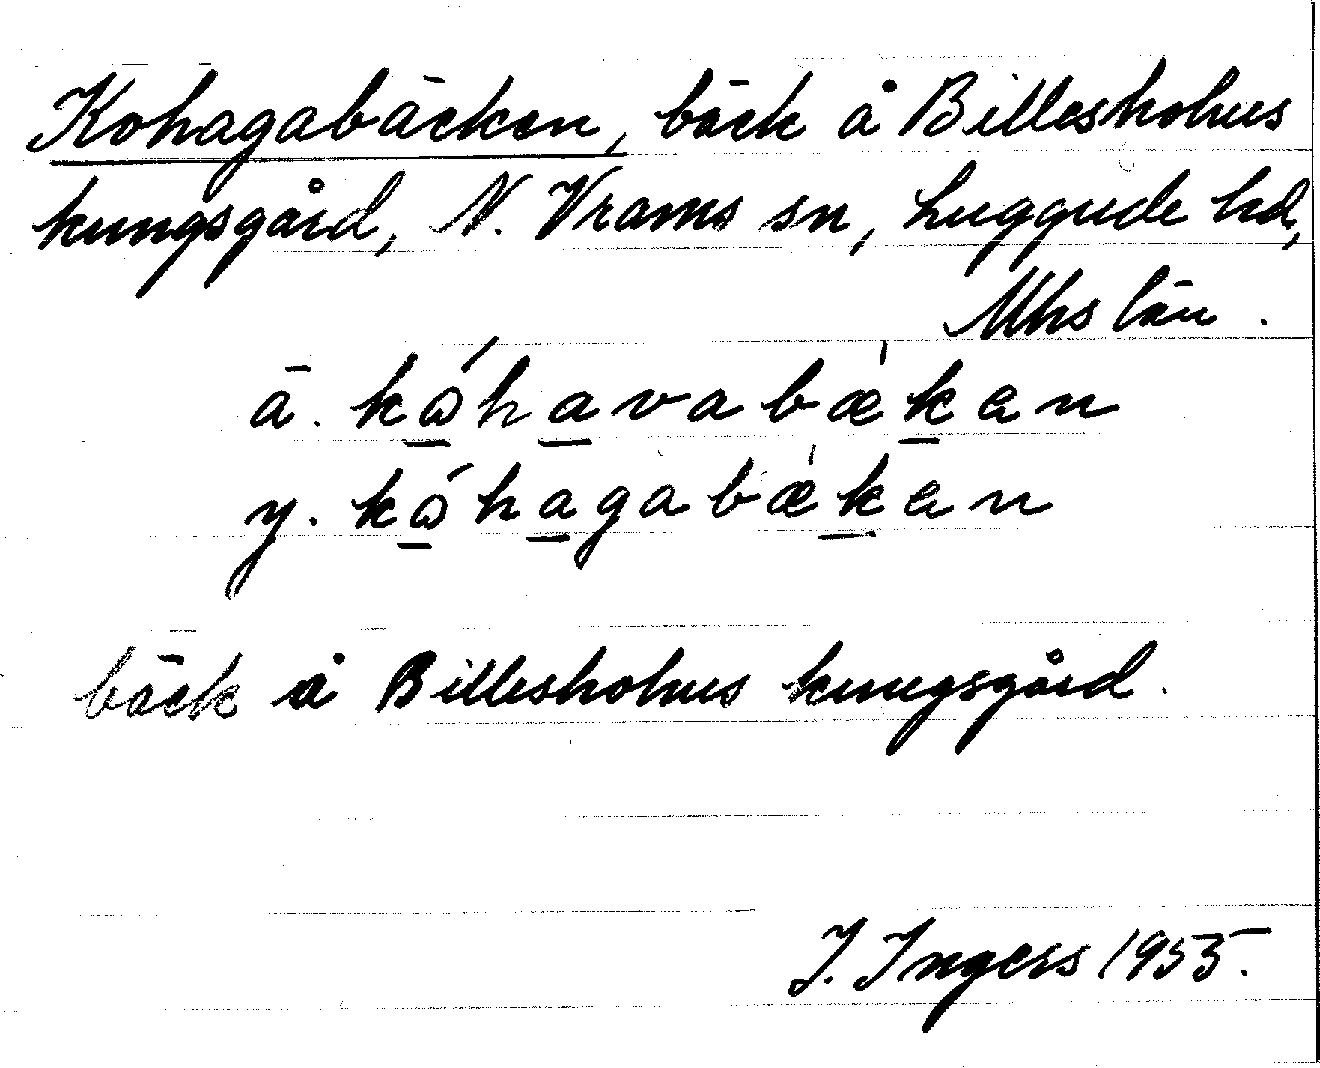 Kohagabäcken, bäck å Billesholms
kungsgård, N. Vrams sn, Luggude hd,
Mhs län.
ä. kóhavabæken
y. kóhagabæken
bäck å Billesholms kungsgård.
I. Ingers 1955.